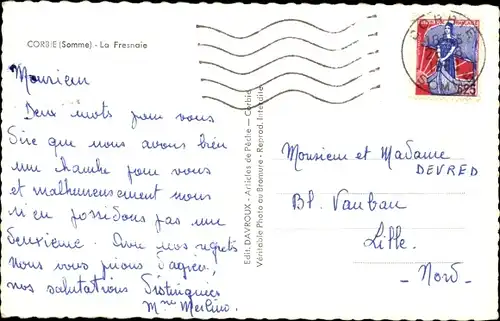 CORBIE (Somme) - La Fresnaie
Monsieur
Deux mots pour vous
dire que nous avons bien
une chambre pour vous
et malheureusement nous
n'en possédons pas une
deuxième. Avec nos regrets
nous vous prions d'agréer,
nos salutations distinguées
Mme Merlino.
Edit. DAVROUX - Articles de Pêche - Corbie
Véritable Photo au Bromure - Reprod. Interdite
CORBIE
0,25
Monsieur et Madame
DEVRED
Bl. Vauban
Lille.
- Nord -